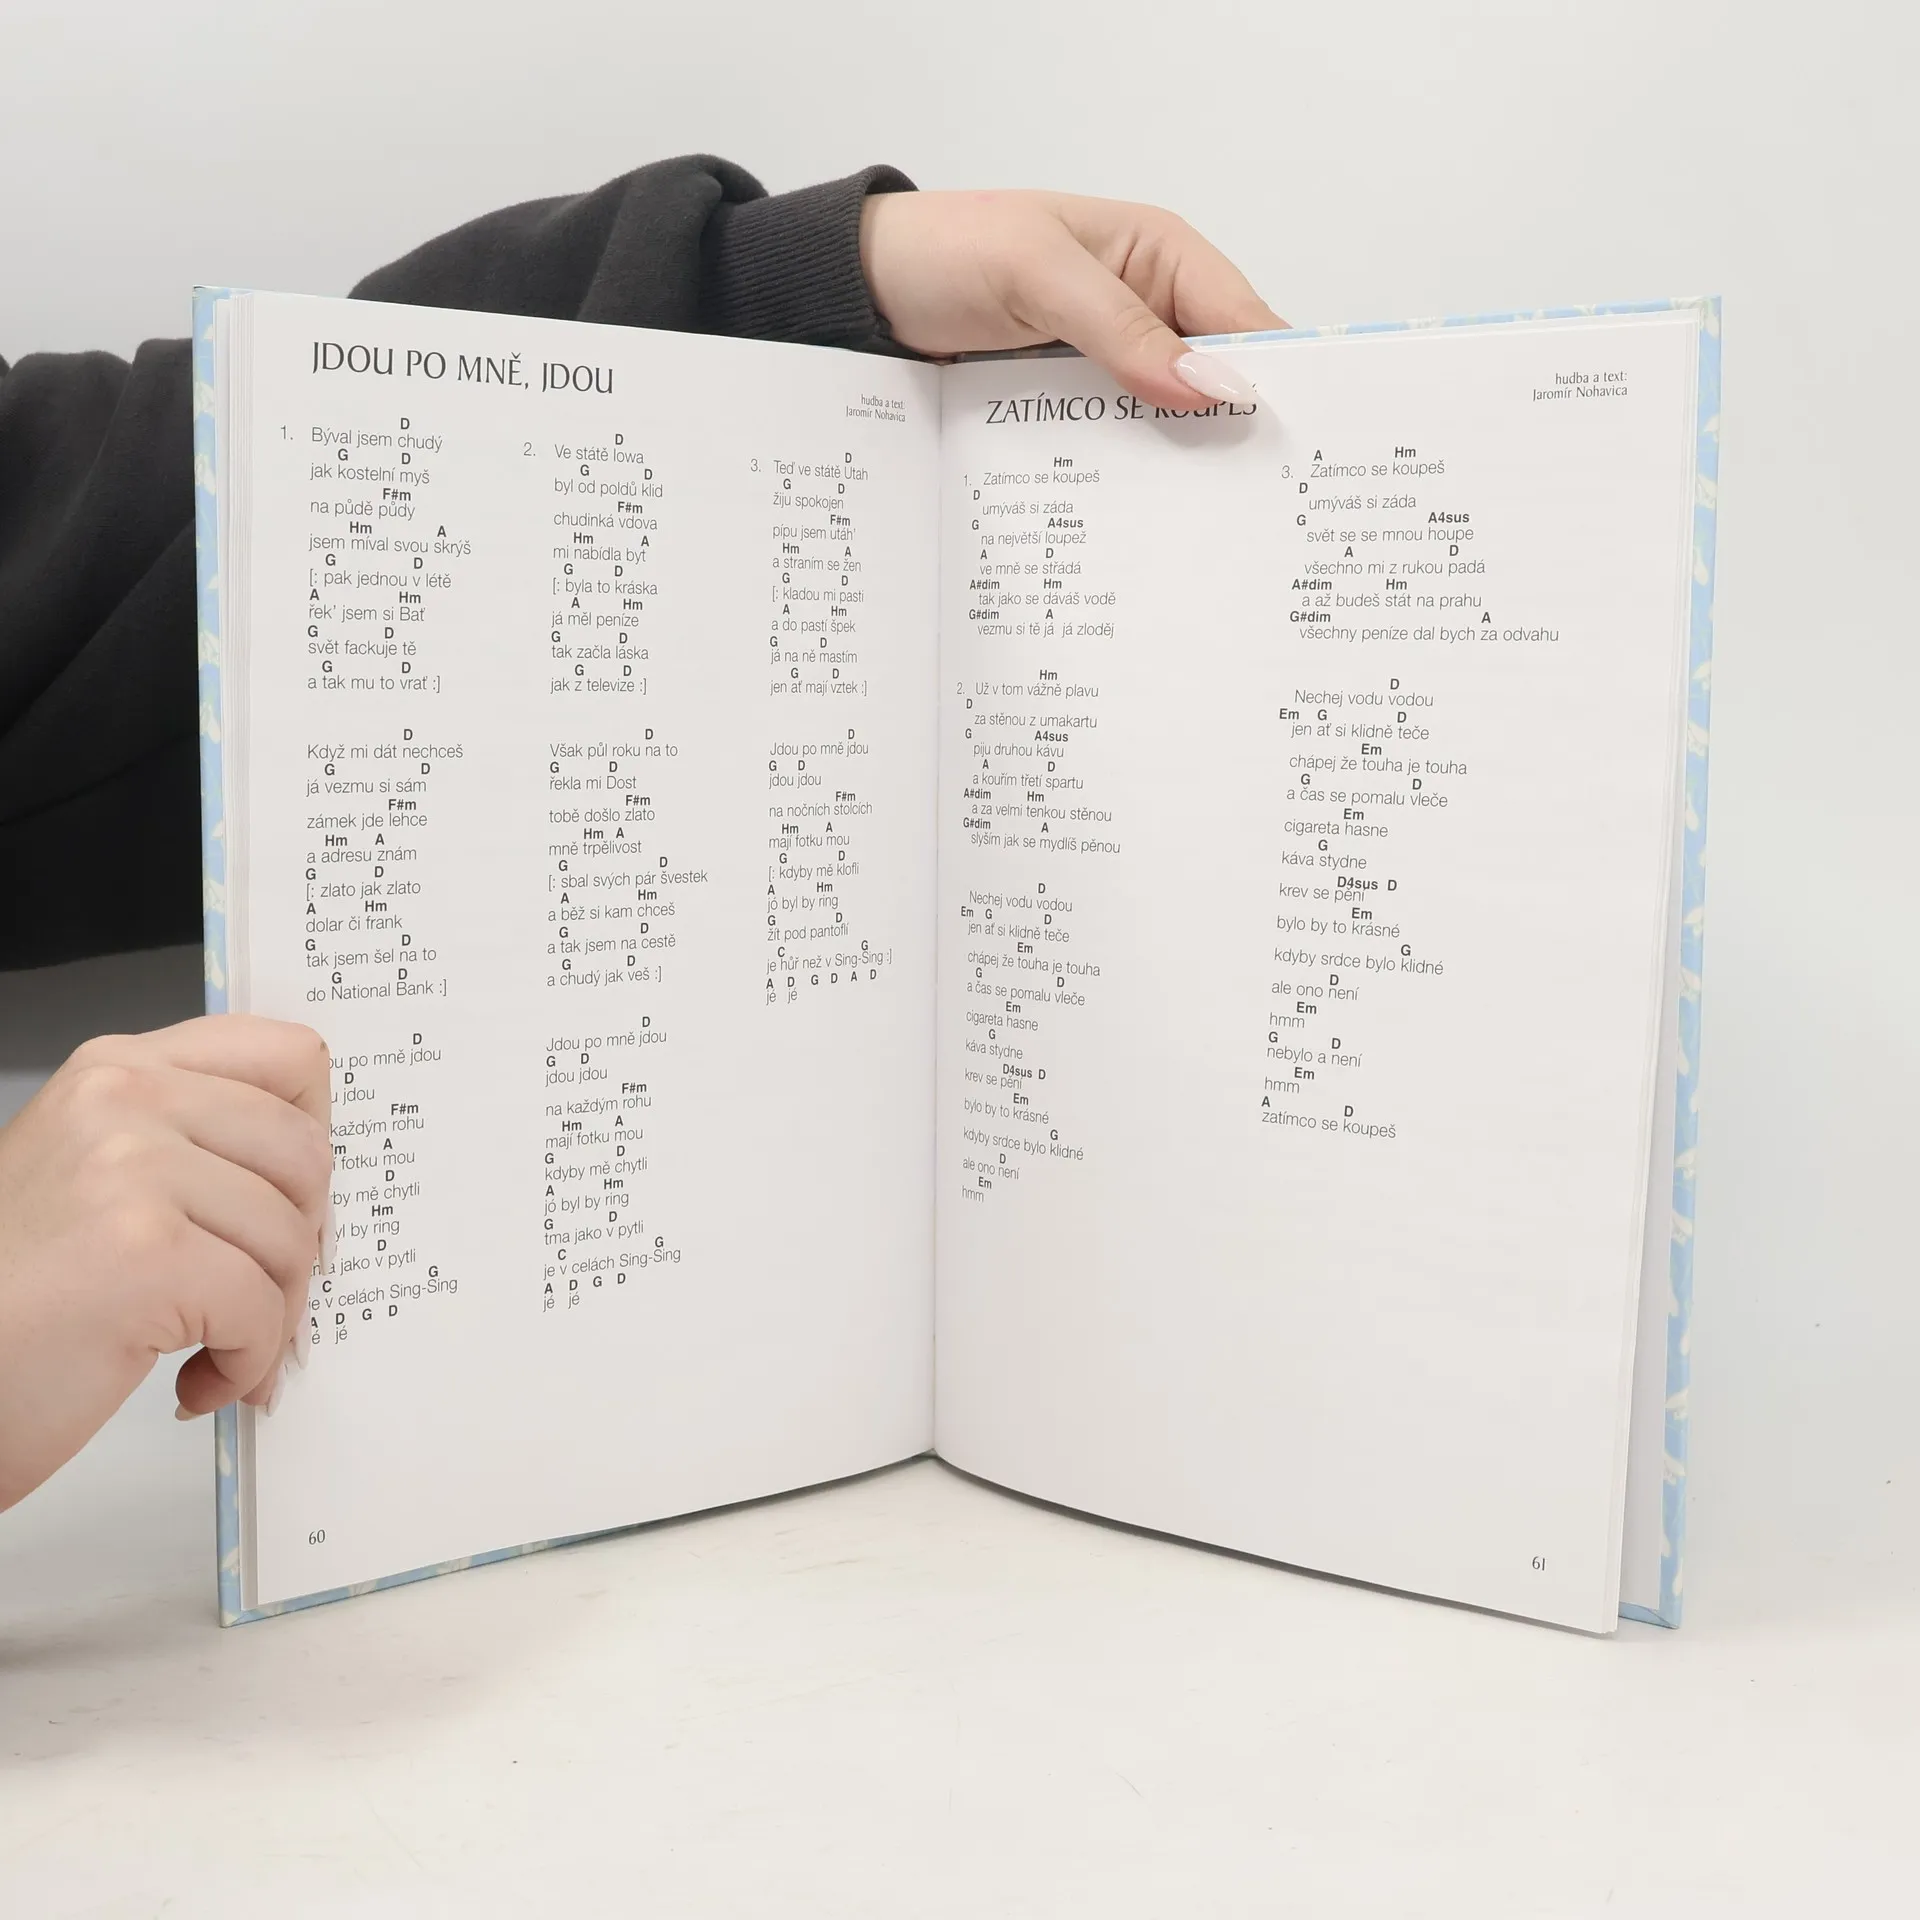 JDOU PO MNĚ, JDOU
hudba a text:
Jaromír Nohavica
D
1. Býval jsem chudý
G D
jak kostelní myš
F#m
na půdě půdy
Hm A
jsem míval svou skrýš
G D
[: pak jednou v létě
A Hm
řek' jsem si Bať
G D
svět fackuje tě
G D
a tak mu to vrať :]
D
Když mi dát nechceš
G D
já vezmu si sám
F#m
zámek jde lehce
Hm A
a adresu znám
G D
[: zlato jak zlato
A Hm
dolar či frank
G D
tak jsem šel na to
G D
do National Bank :]
D
po mně jdou
D
jdou
F#m
každým rohu
A
fotku mou
D
mě chytli
Hm
by ring
D
jako v pytli
C G
je v celách Sing-Sing
A D G D
jé
D
2. Ve státě Iowa
G D
byl od poldů klid
F#m
chudinká vdova
Hm A
mi nabídla byt
G D
[: byla to kráska
A Hm
já měl peníze
G D
tak začla láska
G D
jak z televize :]
D
Však půl roku na to
G D
řekla mi Dost
F#m
tobě došlo zlato
Hm A
mně trpělivost
G D
[: sbal svých pár švestek
A Hm
a běž si kam chceš
G D
a tak jsem na cestě
G D
a chudý jak veš :]
D
Jdou po mně jdou
G D
jdou jdou
F#m
na každým rohu
Hm A
mají fotku mou
G D
kdyby mě chytli
A Hm
jó byl by ring
G D
tma jako v pytli
C G
je v celách Sing-Sing
A D G D
jé jé
D
3. Teď ve státě Utah
G D
žiju spokojen
F#m
pípu jsem utáh'
Hm A
a straním se žen
G D
[: kladou mi pasti
A Hm
a do pastí špek
G D
já na ně mastím
G D
jen ať mají vztek :]
D
Jdou po mně jdou
G D
jdou jdou
F#m
na nočních stolcích
Hm A
mají fotku mou
G D
[: kdyby mě klofli
A Hm
jó byl by ring
G D
žít pod pantoflí
C G
je hůř než v Sing-Sing :]
A D G D A D
jé jé
60
ZATÍMCO SE
hudba a text:
Jaromír Nohavica
Hm
1. Zatímco se koupeš
D
umýváš si záda
G A4sus
na největší loupež
A D
ve mně se střádá
A#dim Hm
tak jako se dáváš vodě
G#dim A
vezmu si tě já já zloděj
Hm
2. Už v tom vážně plavu
D
za stěnou z umakartu
G A4sus
piju druhou kávu
A D
a kouřím třetí spartu
A#dim Hm
a za velmi tenkou stěnou
G#dim A
slyším jak se mydlíš pěnou
D
Nechej vodu vodou
Em G D
jen ať si klidně teče
Em
chápej že touha je touha
G D
a čas se pomalu vleče
Em
cigareta hasne
G
káva stydne
D4sus D
krev se pění
Em
bylo by to krásné
G
kdyby srdce bylo klidné
D
ale ono není
Em
hmm
A Hm
3. Zatímco se koupeš
D
umýváš si záda
G A4sus
svět se se mnou houpe
A D
všechno mi z rukou padá
A#dim Hm
a až budeš stát na prahu
G#dim A
všechny peníze dal bych za odvahu
D
Nechej vodu vodou
Em G D
jen ať si klidně teče
Em
chápej že touha je touha
G D
a čas se pomalu vleče
Em
cigareta hasne
G
káva stydne
D4sus D
krev se pění
Em
bylo by to krásné
G
kdyby srdce bylo klidné
D
ale ono není
Em
hmm
G D
nebylo a není
Em
hmm
A D
zatímco se koupeš
61